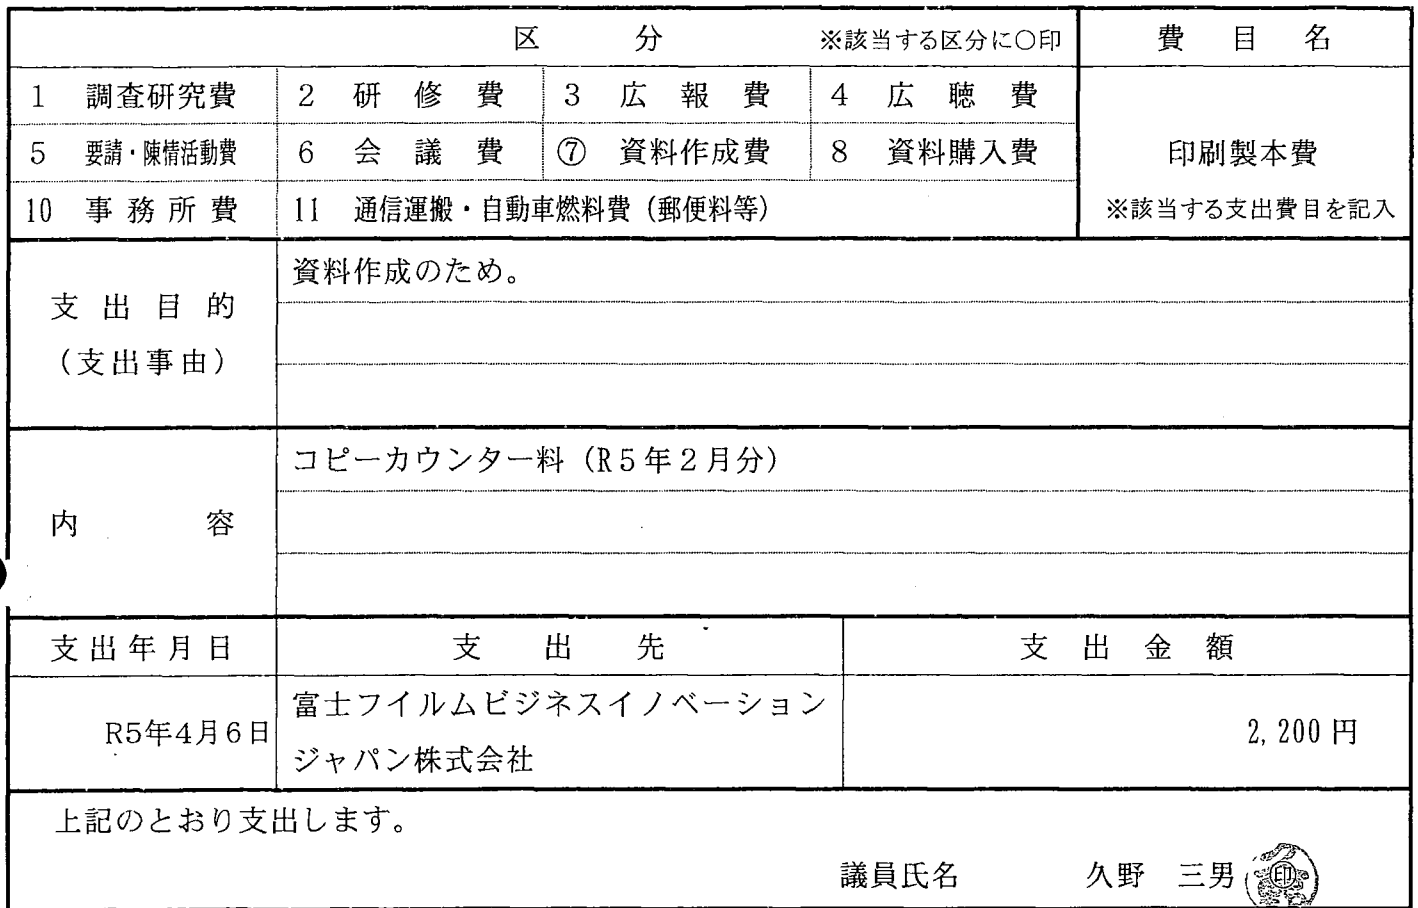 区 分 ※該当する区分に○印 費目名
1 調査研究費 2 研修費 3 広報費 4 広聴費
5 要請・陳情活動費 6 会議費 ⑦ 資料作成費 8 資料購入費 印刷製本費
10 事務所費 11 通信運搬・自動車燃料費（郵便料等） ※該当する支出費目を記入
支出目的
（支出事由）
資料作成のため。
内容
コピーカウンター料（R5年2月分）
支出年月日 支出先 支出金額
R5年4月6日
富士フイルムビジネスイノベーション
ジャパン株式会社
2,200円
上記のとおり支出します。
議員氏名 久野 三男 印